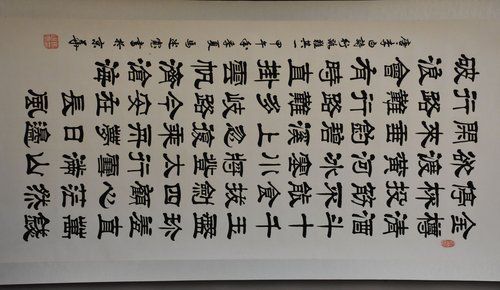 金樽清酒斗十千玉盤珍羞直萬錢
停杯投筯不能食拔劍四顧心茫然
欲渡黃河冰塞川將登太行雪滿山
閑來垂釣碧溪上忽復乘舟夢日邊
行路難行路難多岐路今安在長風
破浪會有時直掛雲帆濟滄海
唐李白詩行路難其一 甲午年季夏馬述書於京華